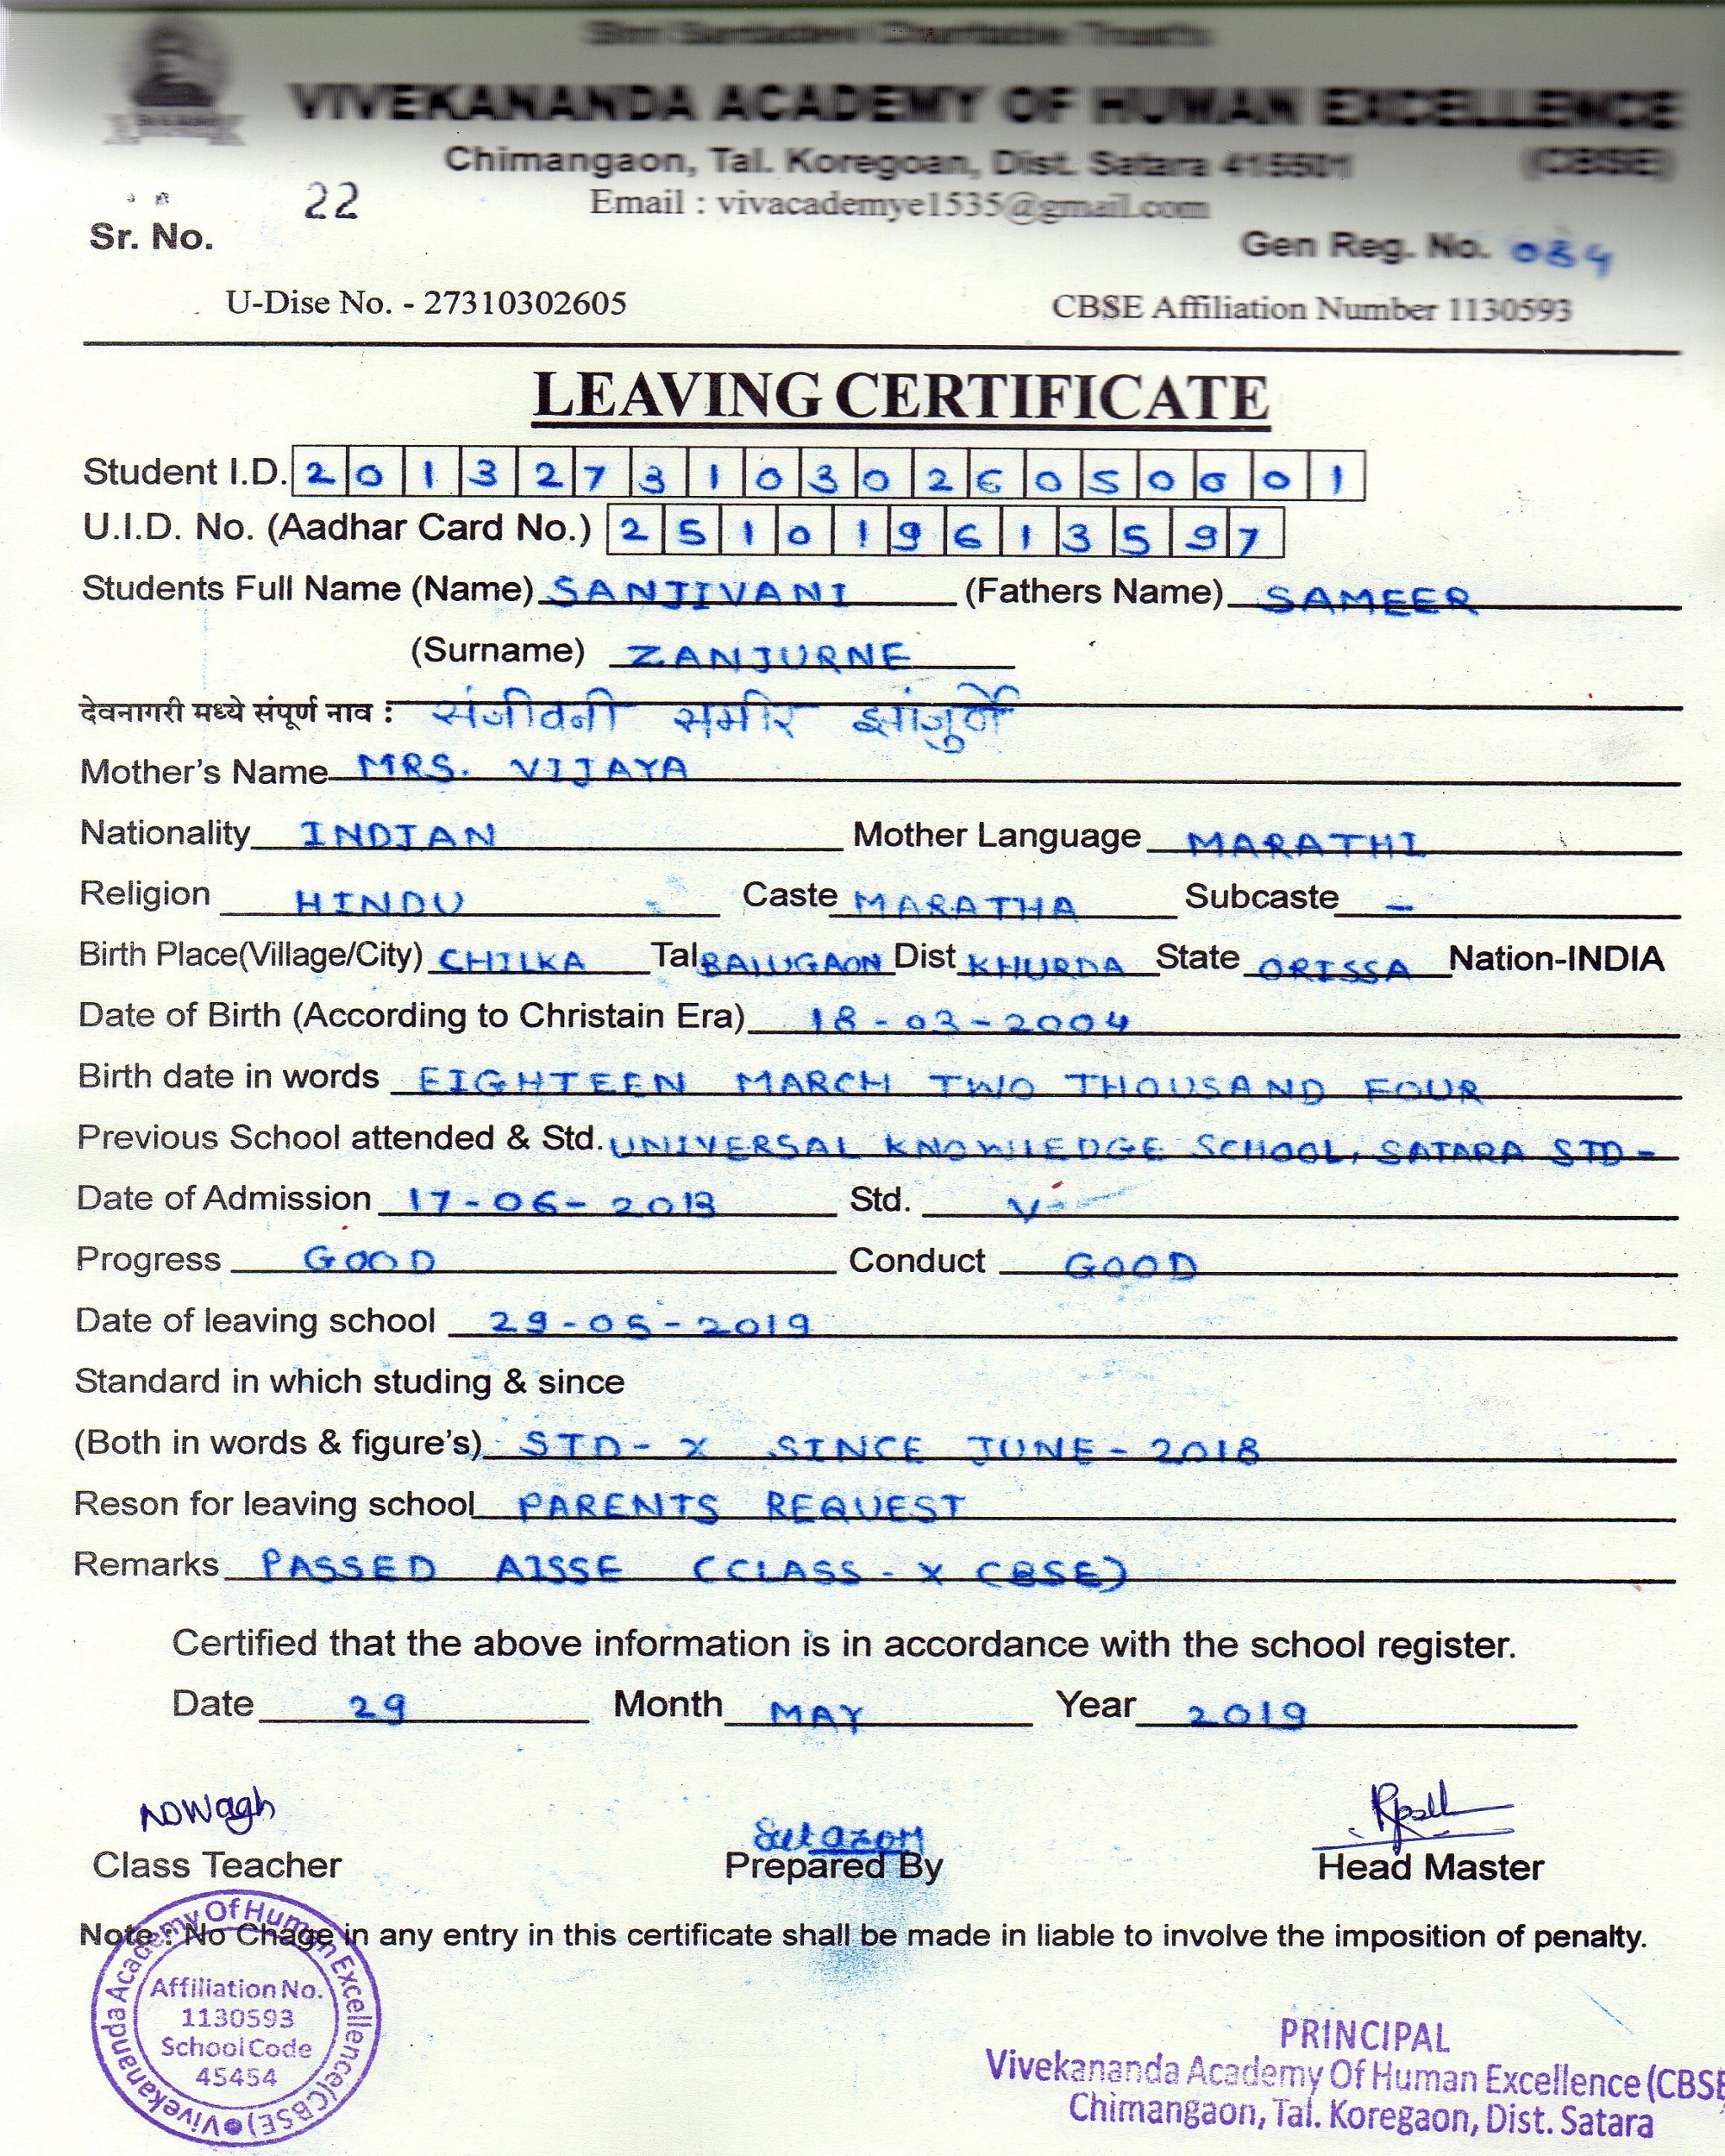 Shri Santadevi Charitable Trust's
VIVEKANANDA ACADEMY OF HUMAN EXCELLENCE
Chimangaon, Tal. Koregoan, Dist. Satara 415501 (CBSE)
Email : vivacademye1535@gmail.com
Sr. No. 22
Gen Reg. No. 034
U-Dise No. - 27310302605 CBSE Affiliation Number 1130593
LEAVING CERTIFICATE
Student I.D. 2013273103026050601
U.I.D. No. (Aadhar Card No.) 251019613597
Students Full Name (Name) SANJIVANI (Fathers Name) SAMEER
(Surname) ZANJURNE
देवनागरी मध्ये संपूर्ण नाव : संजीवनी समीर झांजुर्ने
Mother's Name MRS. VIJAYA
Nationality INDIAN Mother Language MARATHI
Religion HINDU Caste MARATHA Subcaste -
Birth Place(Village/City) CHILKA Tal BALUGAON Dist KHURDA State ORISSA Nation-INDIA
Date of Birth (According to Christain Era) 18-03-2004
Birth date in words EIGHTEEN MARCH TWO THOUSAND FOUR
Previous School attended & Std. UNIVERSAL KNOWLEDGE SCHOOL, SATARA STD-
Date of Admission 17-06-2013 Std. V
Progress GOOD Conduct GOOD
Date of leaving school 29-05-2019
Standard in which studing & since
(Both in words & figure's) STD-X SINCE JUNE-2018
Reson for leaving school PARENTS REQUEST
Remarks PASSED AISSE (CLASS-X CBSE)
Certified that the above information is in accordance with the school register.
Date 29 Month MAY Year 2019
NDWagh
Class Teacher Prepared By Head Master
Note : No Chage in any entry in this certificate shall be made in liable to involve the imposition of penalty.
Vivekananda Academy Of Human Excellence(CBSE)
Affiliation No.
1130593
School Code
45454
PRINCIPAL
Vivekananda Academy Of Human Excellence (CBSE
Chimangaon, Tal. Koregaon, Dist. Satara